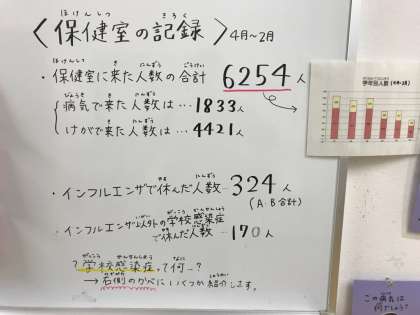 〈保健室の記録〉 4月～2月
・保健室に来た人数の合計 6254人
病気で来た人数は…1833人
けがで来た人数は…4421人
学年別人数(4月-2月)
・インフルエンザで休んだ人数…324人
(A・B合計)
・インフルエンザ以外の学校感染症
で休んだ人数…170人
?学校感染症って何…?
→右側のかべにいくつか紹介します。
この病気は
何でしょう?